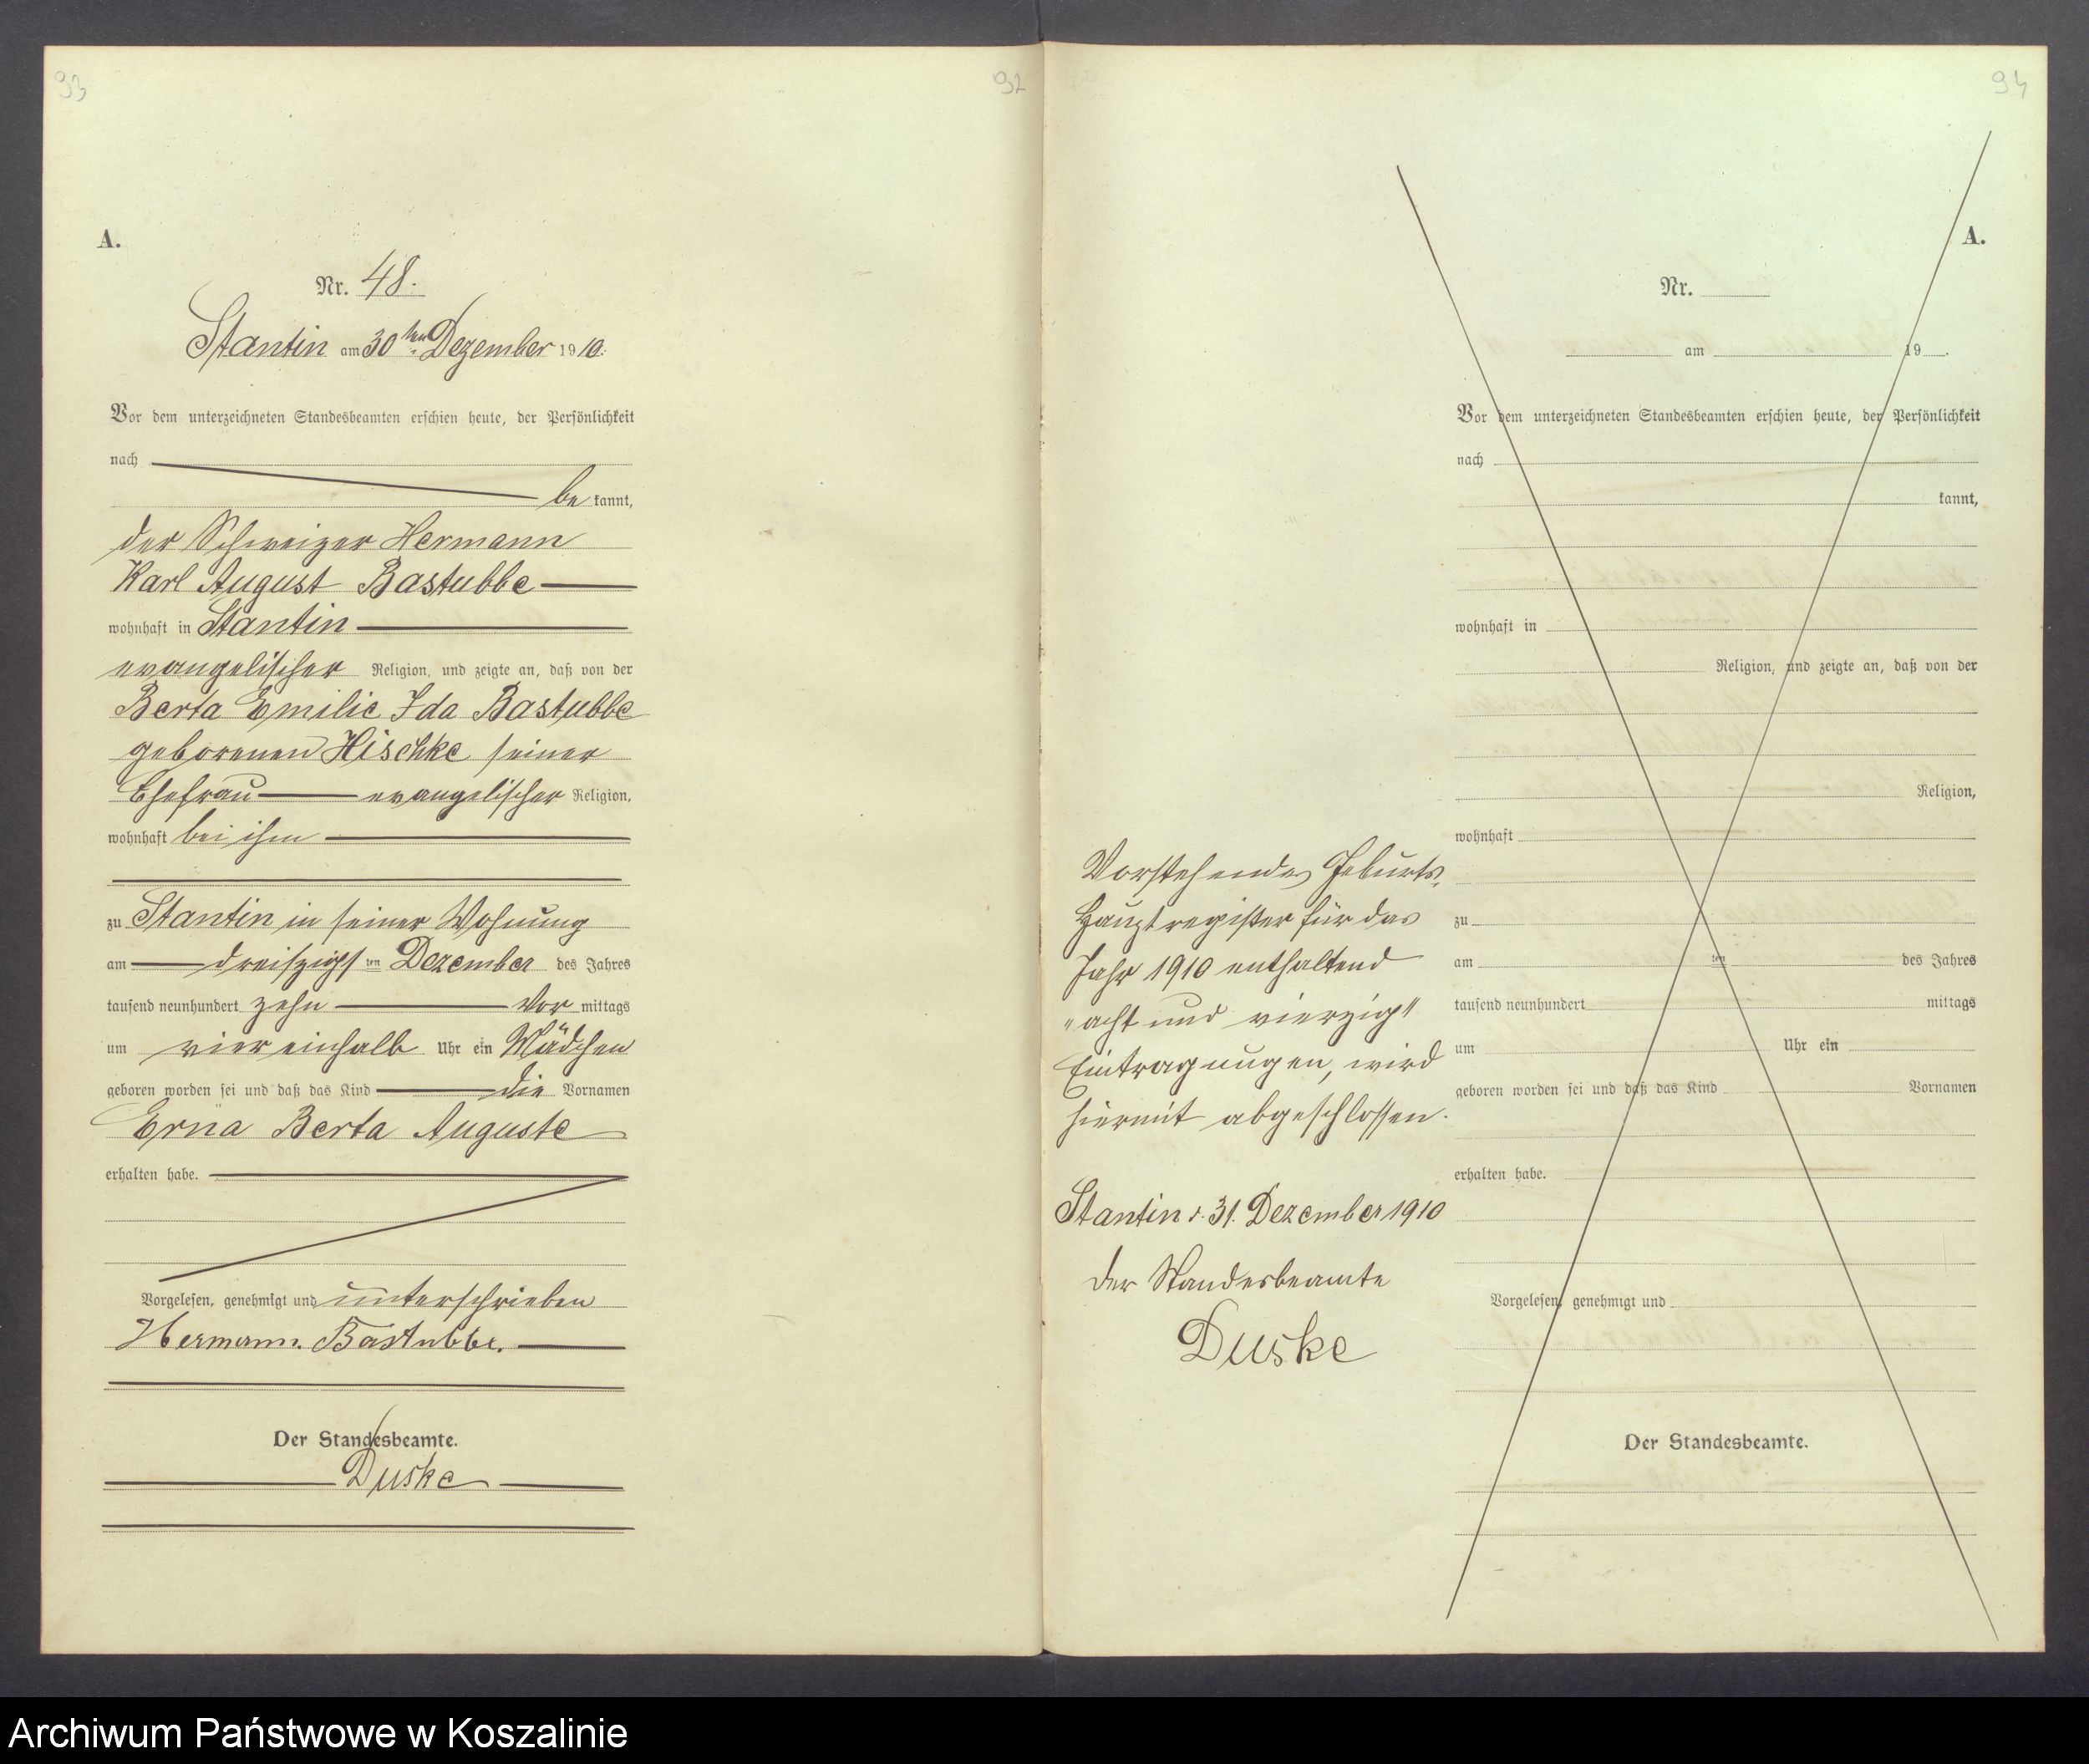 93
A.
Nr. 48.
Stantin am 30ten Dezember 1910.
Vor dem unterzeichneten Standesbeamten erschien heute, der Persönlichkeit
nach
be kannt,
der Schweizer Hermann
Karl August Bastubbe
wohnhaft in Stantin
evangelischer Religion, und zeigte an, daß von der
Berta Emilie Ida Bastubbe
geborenen Hischke seiner
Ehefrau evangelischer Religion,
wohnhaft bei ihm
zu Stantin in seiner Wohnung
am dreiszigsten Dezember des Jahres
tausend neunhundert zehn Vor mittags
um vier einhalb Uhr ein Mädchen
geboren worden sei und daß das Kind die Vornamen
Erna Berta Auguste
erhalten habe.
Vorgelesen, genehmigt und unterschrieben
Hermann Bastubbe.
Der Standesbeamte.
Duske
92
94
Vorstehendes Geburts-
Hauptregister für das
Jahr 1910 enthaltend
"acht und vierzig"
Eintragungen, wird
hiermit abgeschlossen.
Stantin d. 31. Dezember 1910
Der Standesbeamte
Duske
A.
Nr.
am 19 .
Vor dem unterzeichneten Standesbeamten erschien heute, der Persönlichkeit
nach
kannt,
wohnhaft in
Religion, und zeigte an, daß von der
Religion,
wohnhaft
zu
am ten des Jahres
tausend neunhundert mittags
um Uhr ein
geboren worden sei und daß das Kind Vornamen
erhalten habe.
Vorgelesen, genehmigt und
Der Standesbeamte.
Archiwum Państwowe w Koszalinie